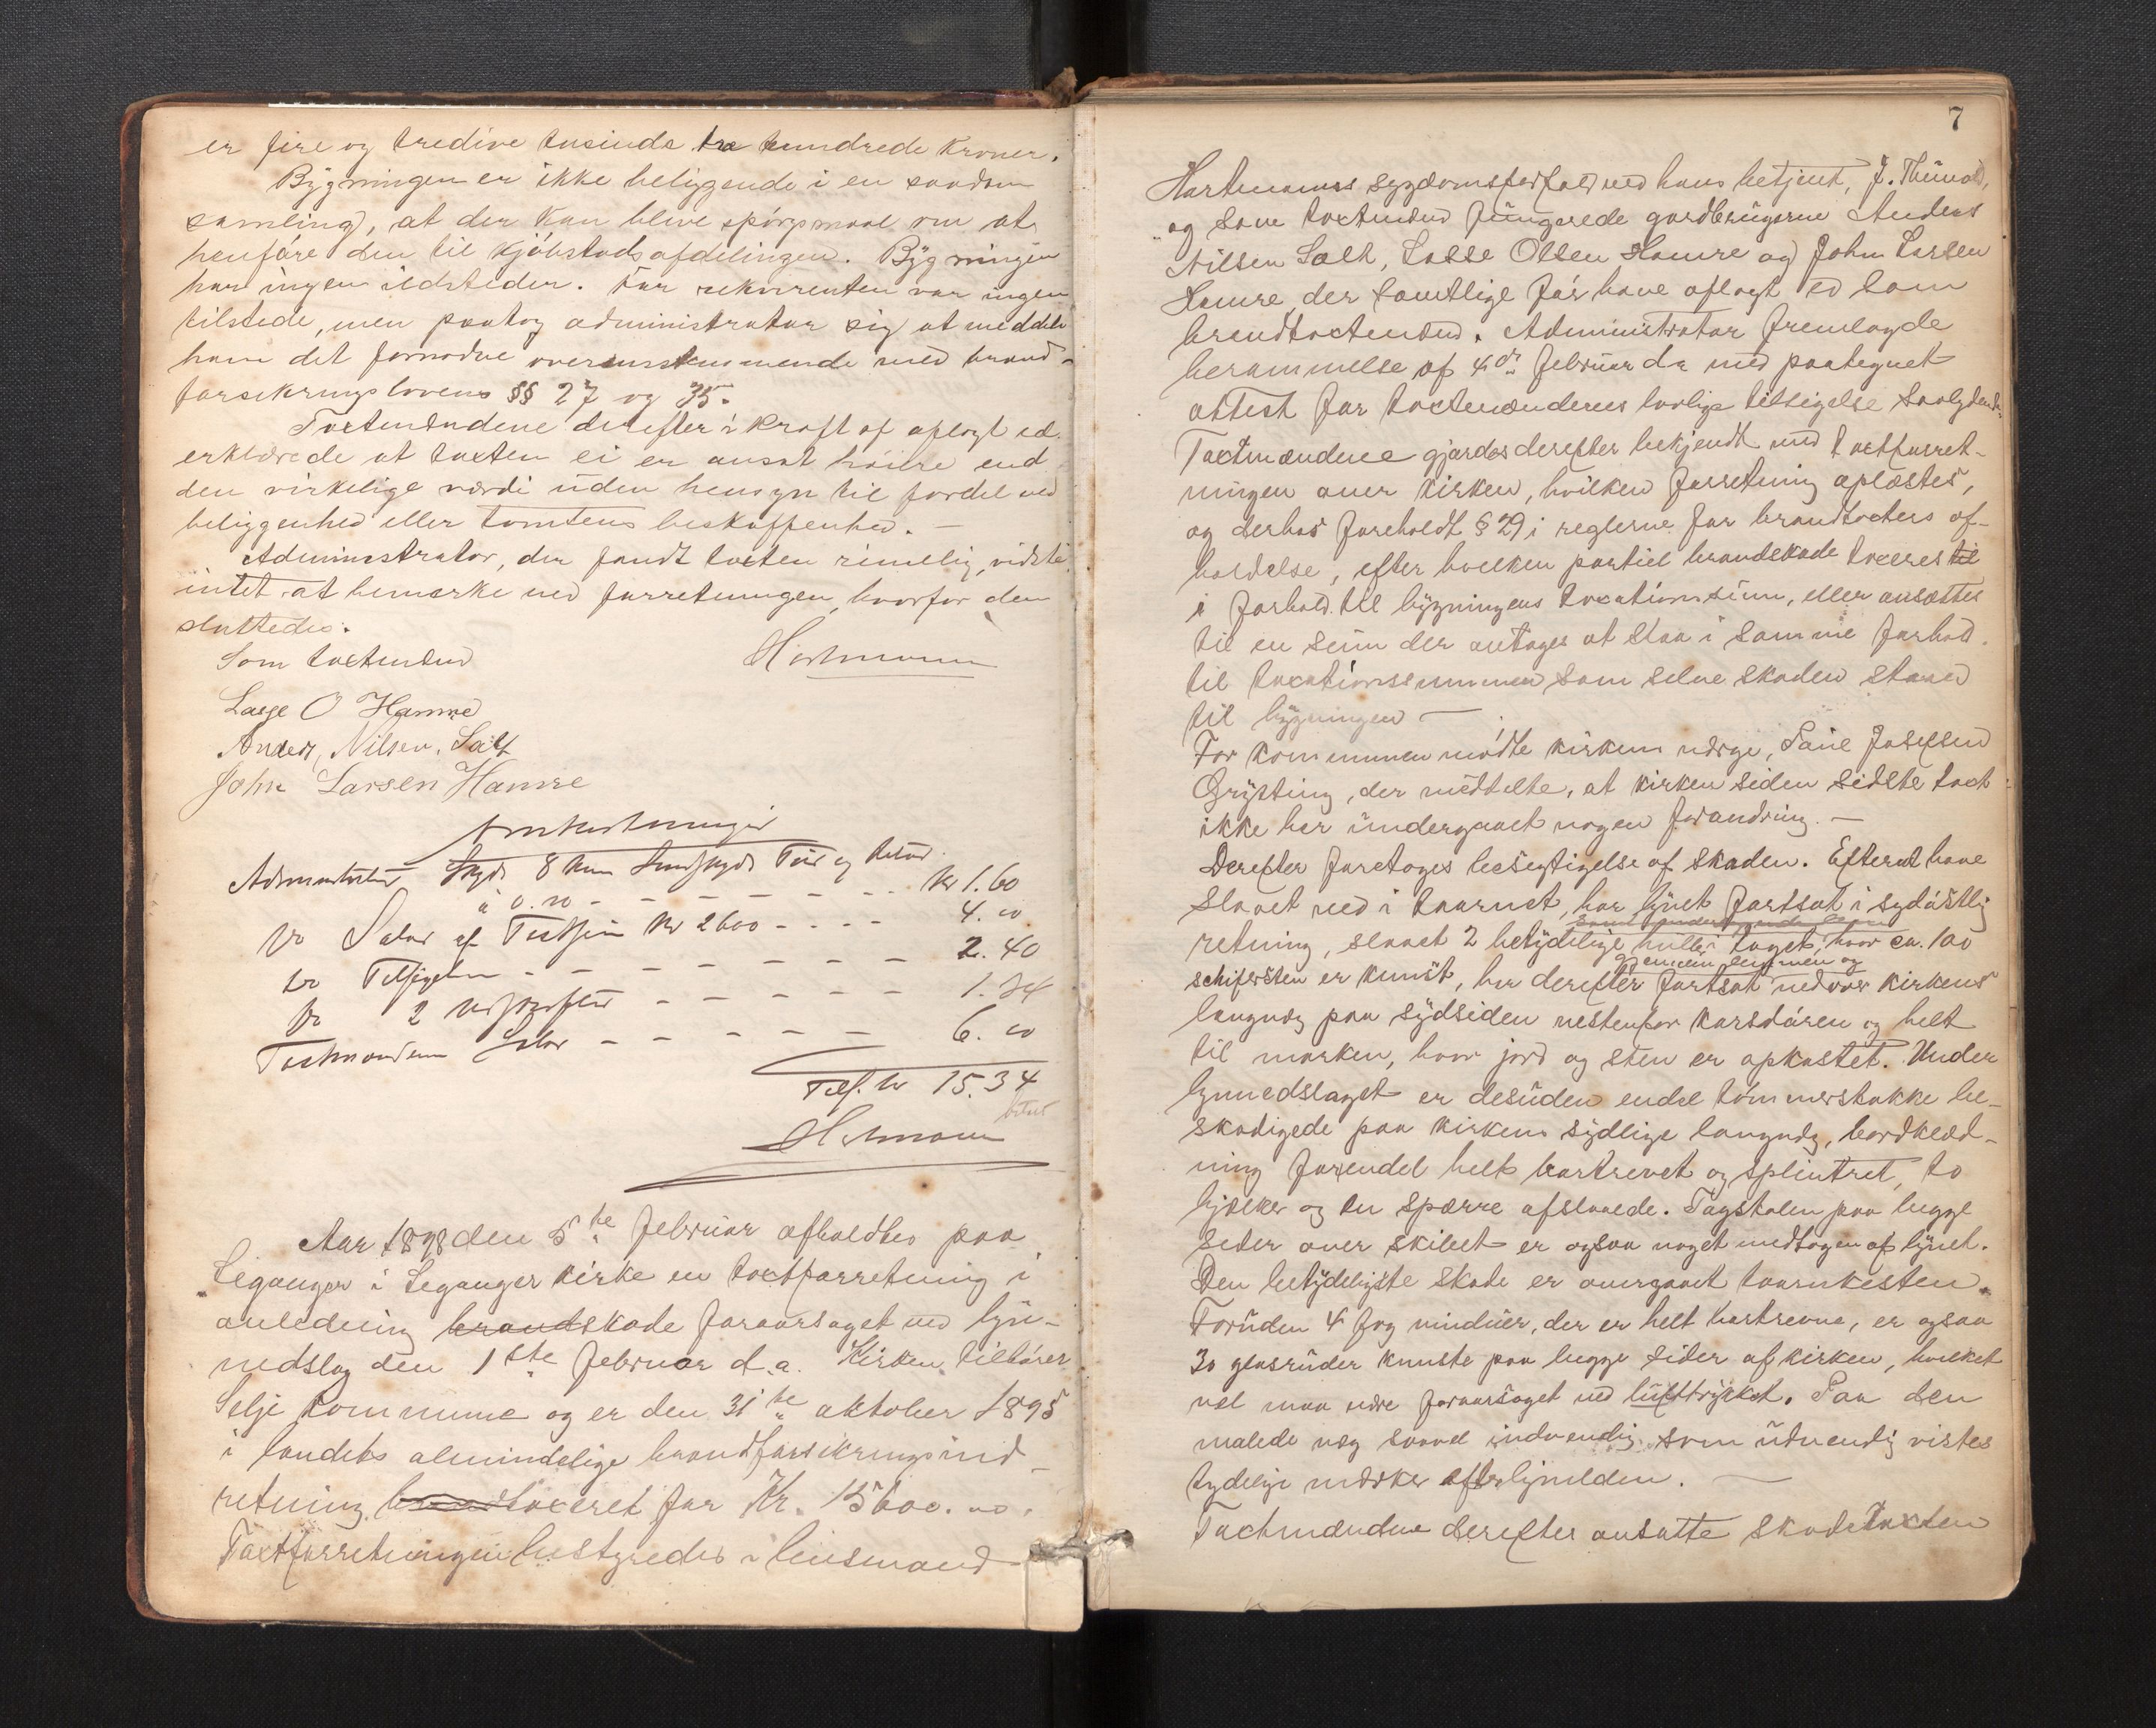 er fire og tredive tusinde tre hundrede Kroner.
Bygningen er ikke beliggende i en saadan
samling, at der kan blive spørgsmaal om at
henføre den til kjøbstadsafdelingen. Bygningen
har ingen ildsteder. For rekvirenten var ingen
tilstede, men paatog administrator sig at meddele
ham det fornødne overensstemmende med brand-
forsikringslovens §§ 27 og 35.
Taxtmændene derefter i kraft af aflagt ed
erklærede at taxten ei er ansat høiere end
den virkelige værdi uden hensyn til fordel ved
beliggenhed eller tomtens beskaffenhed. —
Administrator, der fandt taxten rimelig, vidste
intet at bemærke ved forretningen, hvorfor den
sluttedes.
Som taxtmænd
Hartmann
Lasse O Hamre
Anders Nilsen Salt
John Larsen Hamre
Omkostninger
Administrator Skyds 8 km Landskyds Tur og Retur
à 0.10 - - - - - - Kr 1.60
do Salar af Taxtsum Kr 2600 - - - - 4.00
do Tilsigelse - - - - - - - 2.40
do 2 - - - - - - 1.34
Taxtmændene Salar - - - - - 6.00
Tils. kr 15.34
Hartmann
Aar 1898 den 5te februar afholdtes paa
Leganger i Leganger kirke en taxtforretning i
anledning brandskade foraarsaget ved lyn-
nedslag den 1ste februar d.a. Kirken tilhører
Selje kommune og er den 31te oktober 1895
i landets almindelige brandforsikringsind-
retning brandtaxeret for Kr. 15600.00.
Taxtforretningen bestyredes i lensmand
7
Hartmanns sygdomsforfald ved hans betjent, J.
og som taxtmænd fungerede gardbrugerne Anders
Nilsen Salt, Lasse Olsen Hamre og John Larsen
Hamre, der samtlige før have aflagt ed som
brandtaxtmænd. Administrator fremlagde
berammelse af 4de februar da med paategnet
attest for taxtmændenes lovlige tilsigelse
Taxtmændene gjordes derefter bekjendt med taxtforret-
ningen over kirken, hvilken forretning oplæstes,
og derhos foreholdt § 29 i reglerne for brandtaxters af-
holdelse, efter hvilken partiel brandskade taxeres til
i forhold til bygningens taxationssum, eller ansættes
til en sum der antages at staa i samme forhold
til taxationssummen som selve skaden staaer
til bygningen —
For kommunen mødte kirkens værge, Paul Josefsen
Gryting, der meddelte, at kirken siden sidste taxt
ikke har undergaaet nogen forandring. —
Derefter foretoges besigtigelse af skaden. Efterat have
slaaet ned i taarnet, har lynet fortsat i sydøstlig
retning, slaaet 2 betydelige huller i taget, hvor ca. 100
gjennem lemmen og
schifersten er knust, har derefter fortsat nedover kirkens
langvæg paa sydsiden vestenfor korsdøren og helt
til marken, hvor jord og sten er opkastet. Under
lynnedslaget er desuden endel tømmerstokke be-
skadigede paa kirkens sydlige langvæg, bordklæd-
ning forendel helt bortrevet og splintret, to
bjælker og en sperre afslaaede. Tagstolen paa begge
sider over skibet er ogsaa noget medtagen af lynet.
Den betydeligste skade er overgaaet taarnkisten.
Foruden 4 fag vinduer, der er helt bortrevne, er ogsaa
30 glasruder knuste paa begge sider af kirken, hvilket
vel maa være foraarsaget ved lufttrykket. Paa den
malede væg saavel indvendig som udvendig vistes
tydelige mærker efter lynilden. —
Taxtmændene derefter ansatte skadetaxten